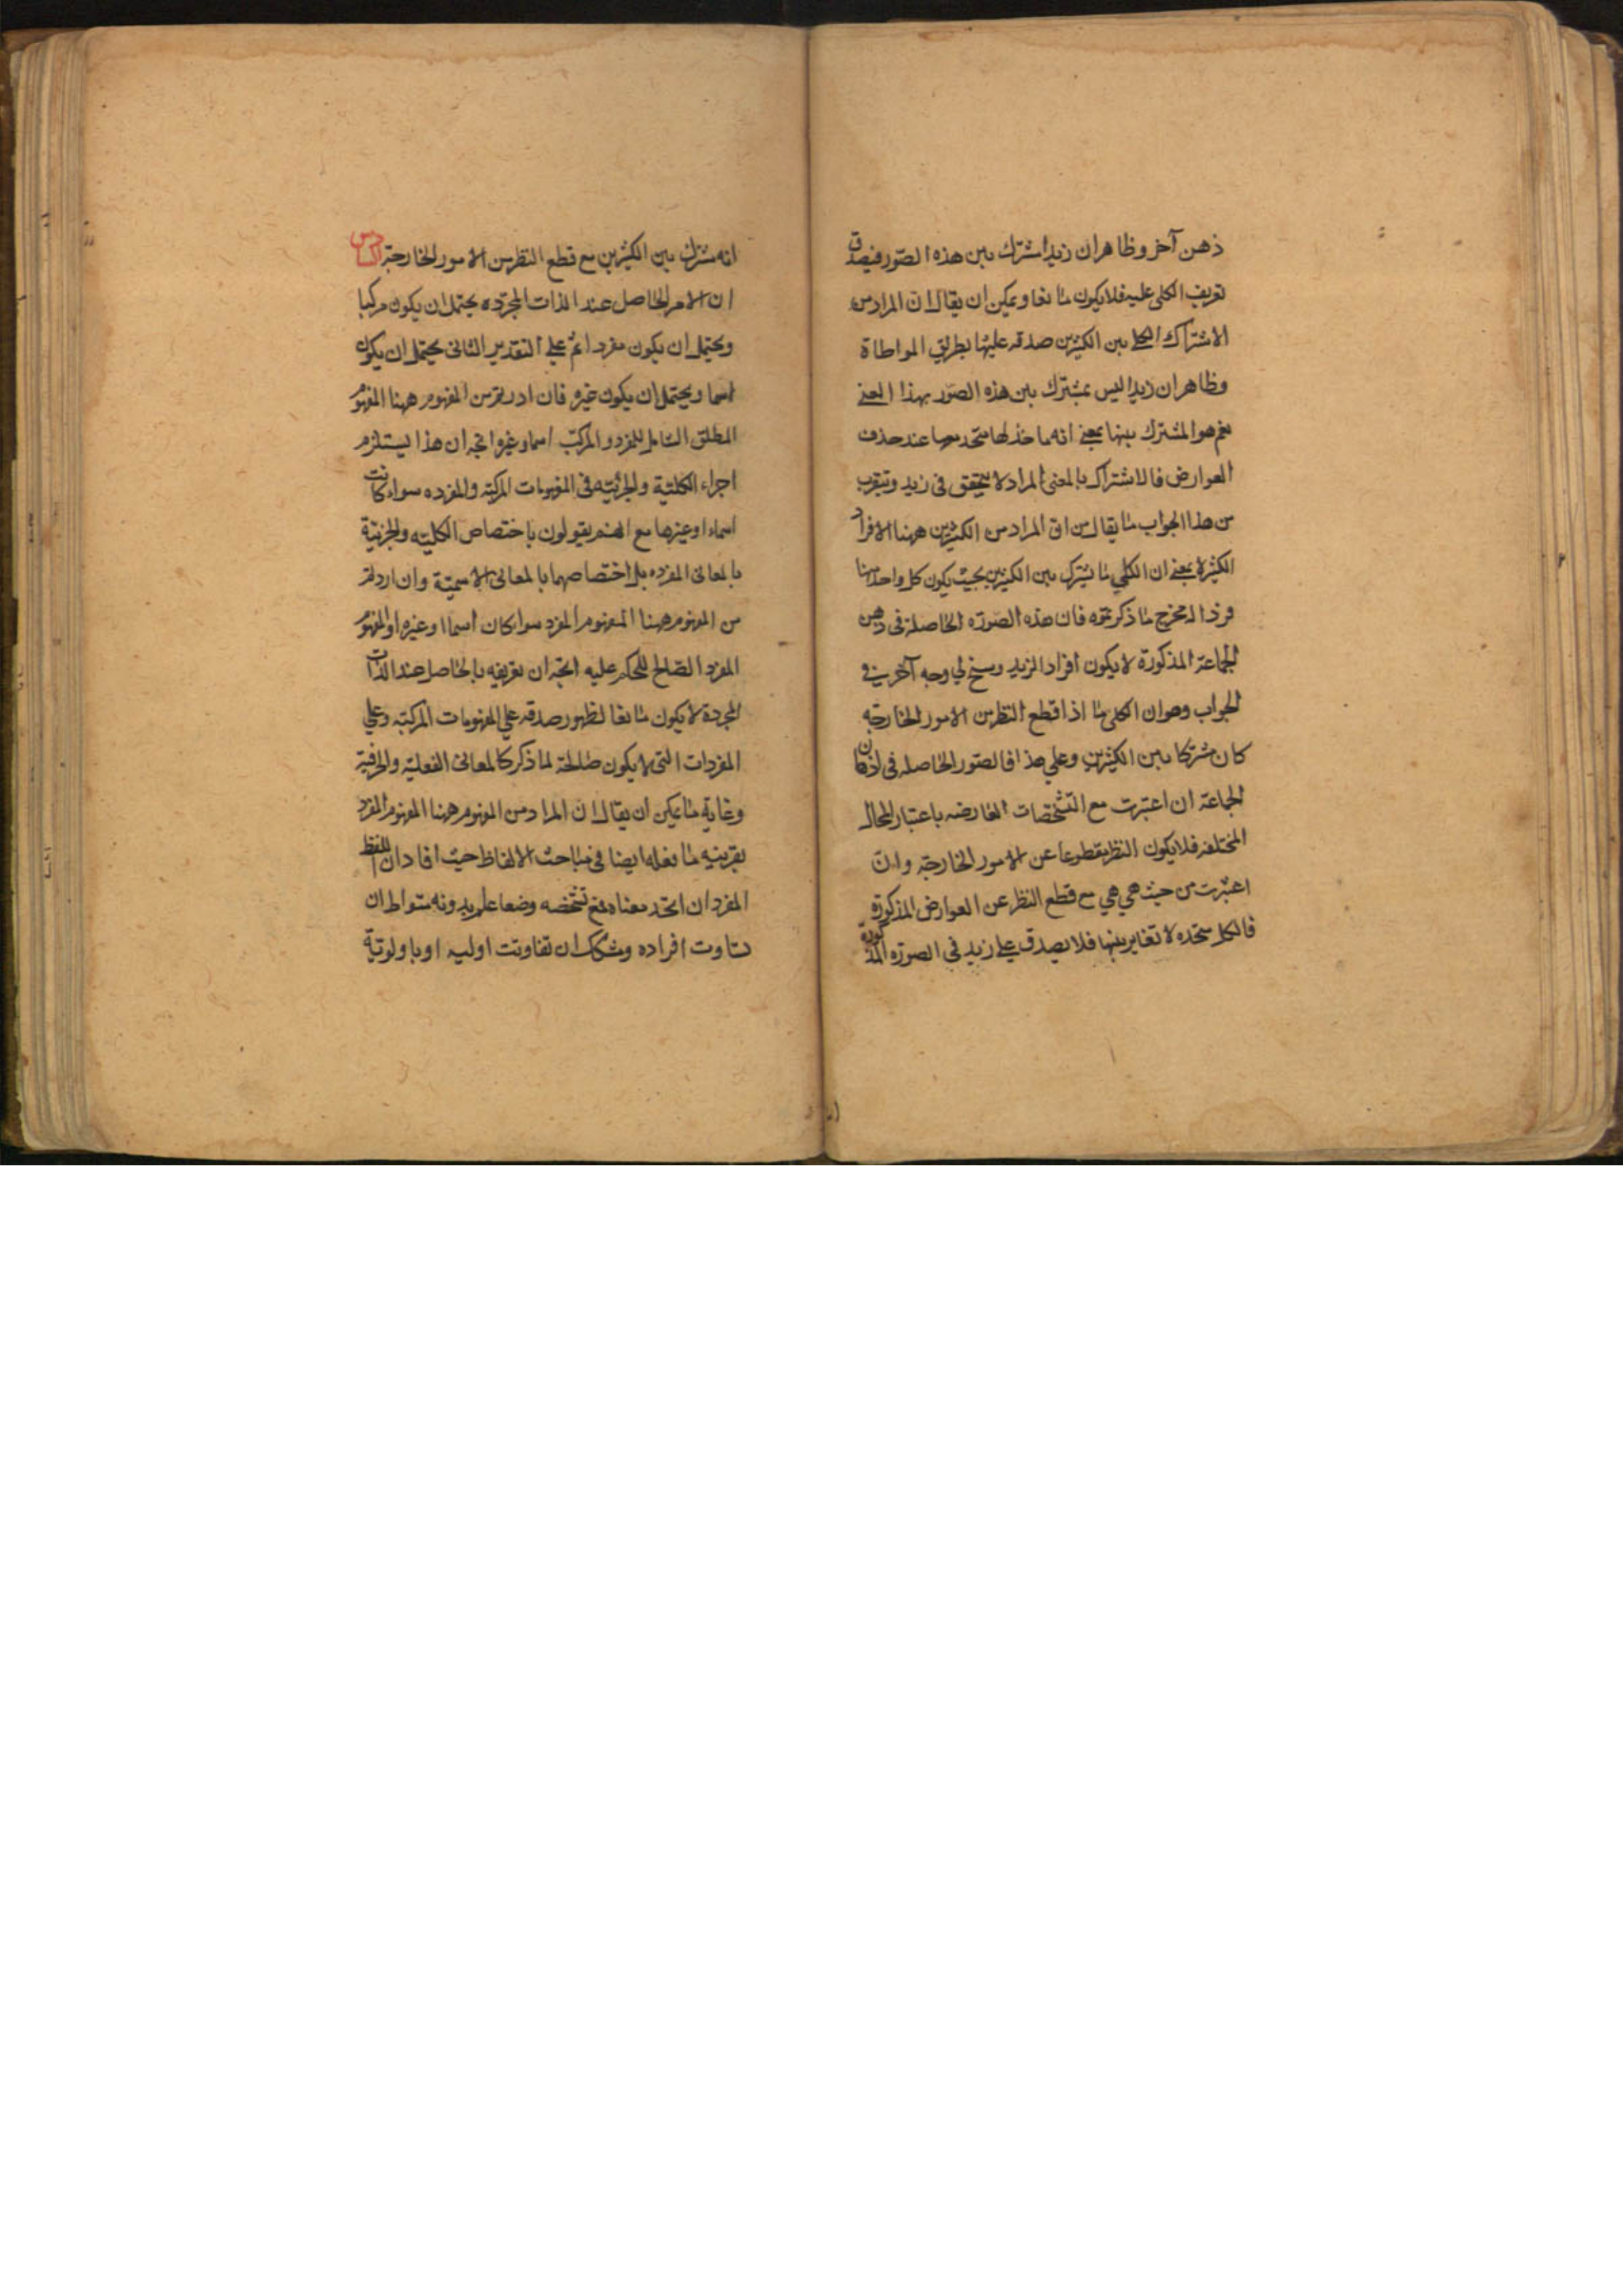 ذهن آخر وظاهر ان زيدا مشترك بين هذه الصور فيصدق
تعريف الكلى عليه فلا يكون مانعا ويمكن ان يقال ان المراد من
الاشتراك بين الكثيرين صدقه عليها بطريق المواطاة
وظاهر ان زيدا ليس بمشترك بين هذه الصور بهذا المعنى
نعم هو المشترك بينها بمعنى انه ماخذ لها متحد معها عند حذف
العوارض فالاشتراك بالمعنى المراد لا يتحقق فى زيد ويتقرب
من هذا الجواب ما يقال من ان المراد من الكثيرين ههنا الافراد
الكثيرة بمعنى ان الكلي ما يشترك بين الكثيرين بحيث يكون كل واحد منها
فردا له مخرج ما ذكرتموه فان هذه الصورة الحاصلة فى ذهن
الجماعة المذكورة لا يكون افراد الزيد وسنخ لي وجه آخر في
الجواب وهو ان الكلى ما اذا قطع النظر من الامور الخارجة
كان مشتركا بين الكثيرين وعلي هذا فالصور الحاصله فى اذهان
الجماعة ان اعتبرت مع التشخصات العارضه باعتبار المحال
المختلفه فلا يكون النظر مقطوعا عن الامور الخارجة وان
اعتبرت من حيث هي هي مع قطع النظر عن العوارض المذكورة
فالكل متحده لا تغاير بينها فلا يصدق علي زيد في الصورة المذكورة
انه مشترك بين الكثيرين مع قطع النظر من الامور الخارجة السادس
ان الامر الحاصل عند الذات المجرده يحتمل ان يكون مركبا
ويحتمل ان يكون مفردا ثم علي التقدير الثانى يحتمل ان يكون
اسما ويحتمل ان يكون غيره فان اردتم من المفهوم ههنا المفهوم
المطلق الشامل للمفرد والمركب اسما وغيره اتجه ان هذا يستلزم
اجراء الكلية والجزئية فى المفهومات المركبة والمفرده سواء كانت
اسماء او غيرها مع انهم يقولون باختصاص الكليه والجزئية
بالمعانى المفرده بل اختصاصهما بالمعانى الاسمية وان اردتم
من المفهوم ههنا المفهوم المفرد سواء كان اسما او غيره او المفهوم
المفرد الصالح للحكم عليه اتجه ان تعريفه بالحاصل عند الذات
المجردة لا يكون مانعا لظهور صدقه علي المفهومات المركبه وعلي
المفردات التى لا يكون صالحة لما ذكر كالمعانى الفعلية والحرفية
وغاية ما يمكن ان يقال ان المراد من المفهوم ههنا المفهوم المفرد
بقرينه ما نقله ايضا فى مباحث الالفاظ حيث افاد ان اللفظ
المفرد ان اتحد معناه فمع تشخصه وضعا علم وبدونه متواط ان
تساوت افراده ومشكك ان تفاوتت اوليه او باولوية